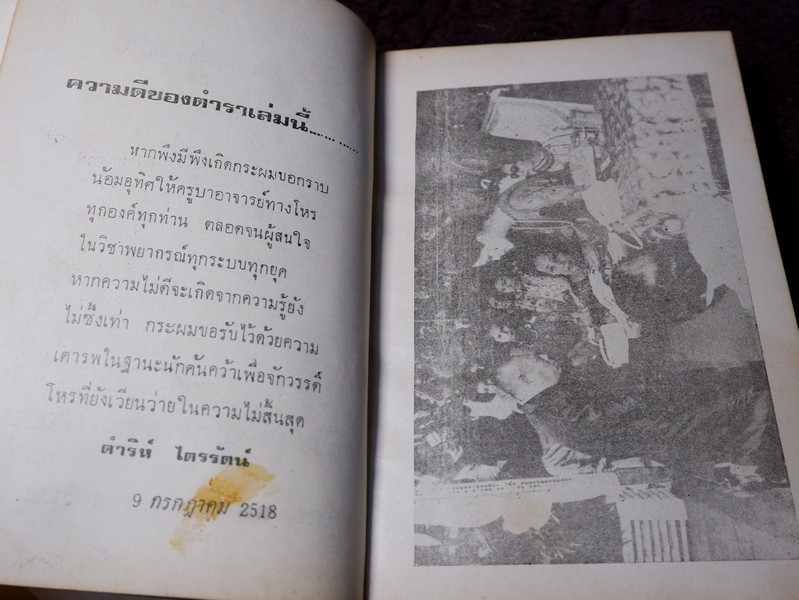 ความดีของตำราเล่มนี้.............
หากพึงมีพึงเกิดกระผมขอกราบ
น้อมอุทิศให้ครูบาอาจารย์ทางโหร
ทุกองค์ทุกท่าน ตลอดจนผู้สนใจ
ในวิชาพยากรณ์ทุกระบบทุกยุค
หากความไม่ดีจะเกิดจากความรู้ยัง
ไม่ซึ้งเท่า กระผมขอรับไว้ด้วยความ
เคารพในฐานะนักค้นคว้าเพื่อจักวรรดิ์
โหรที่ยังเวียนว่ายในความไม่สิ้นสุด
ดำริห์ ไตรรัตน์
9 กรกฎาคม 2518